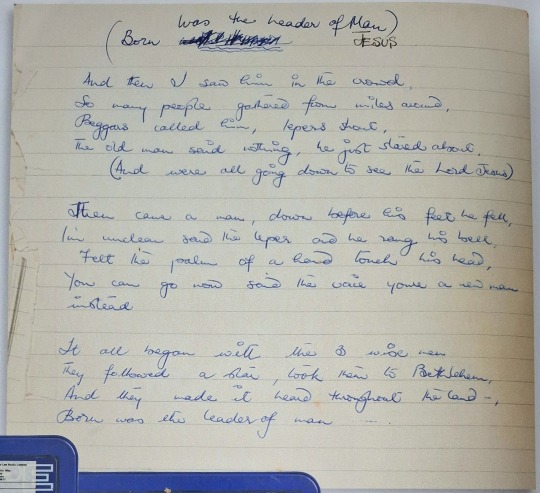 (Born Was the leader of Man)
JESUS
And then I saw him in the crowd,
So many people gathered from miles around,
Beggars called him, lepers shout,
The old man said nothing, he just stared about.
(And were all going down to see the Lord Jesus)
Then came a man, down before his feet he fell,
I'm unclean said the leper and he rang his bell.
Felt the palm of a hand touch his head,
You can go now said the voice youre a new man
instead
It all began with the 3 wise men
They followed a star, took them to Bethlehem,
And they made it heard throughout the land -,
Born was the leader of man ....